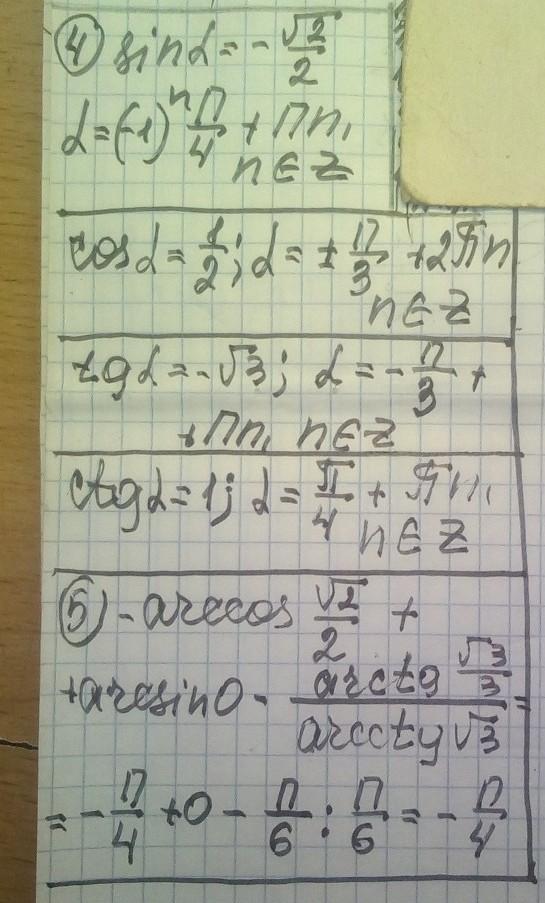 ④ sinα = -√2/2
α = (-1)ⁿ П/4 + Пn,
n ∈ Z
cosα = 1/2; α = ± П/3 + 2πn
n ∈ Z
tgα = -√3; α = -П/3 +
+Пn, n ∈ Z
ctgα = 1; α = π/4 + πn,
n ∈ Z
⑤ - arccos √2/2 +
+arcsin0 - (arctg √3/3)/(arcctg √3) =
= -П/4 + 0 - П/6 : П/6 = -П/4